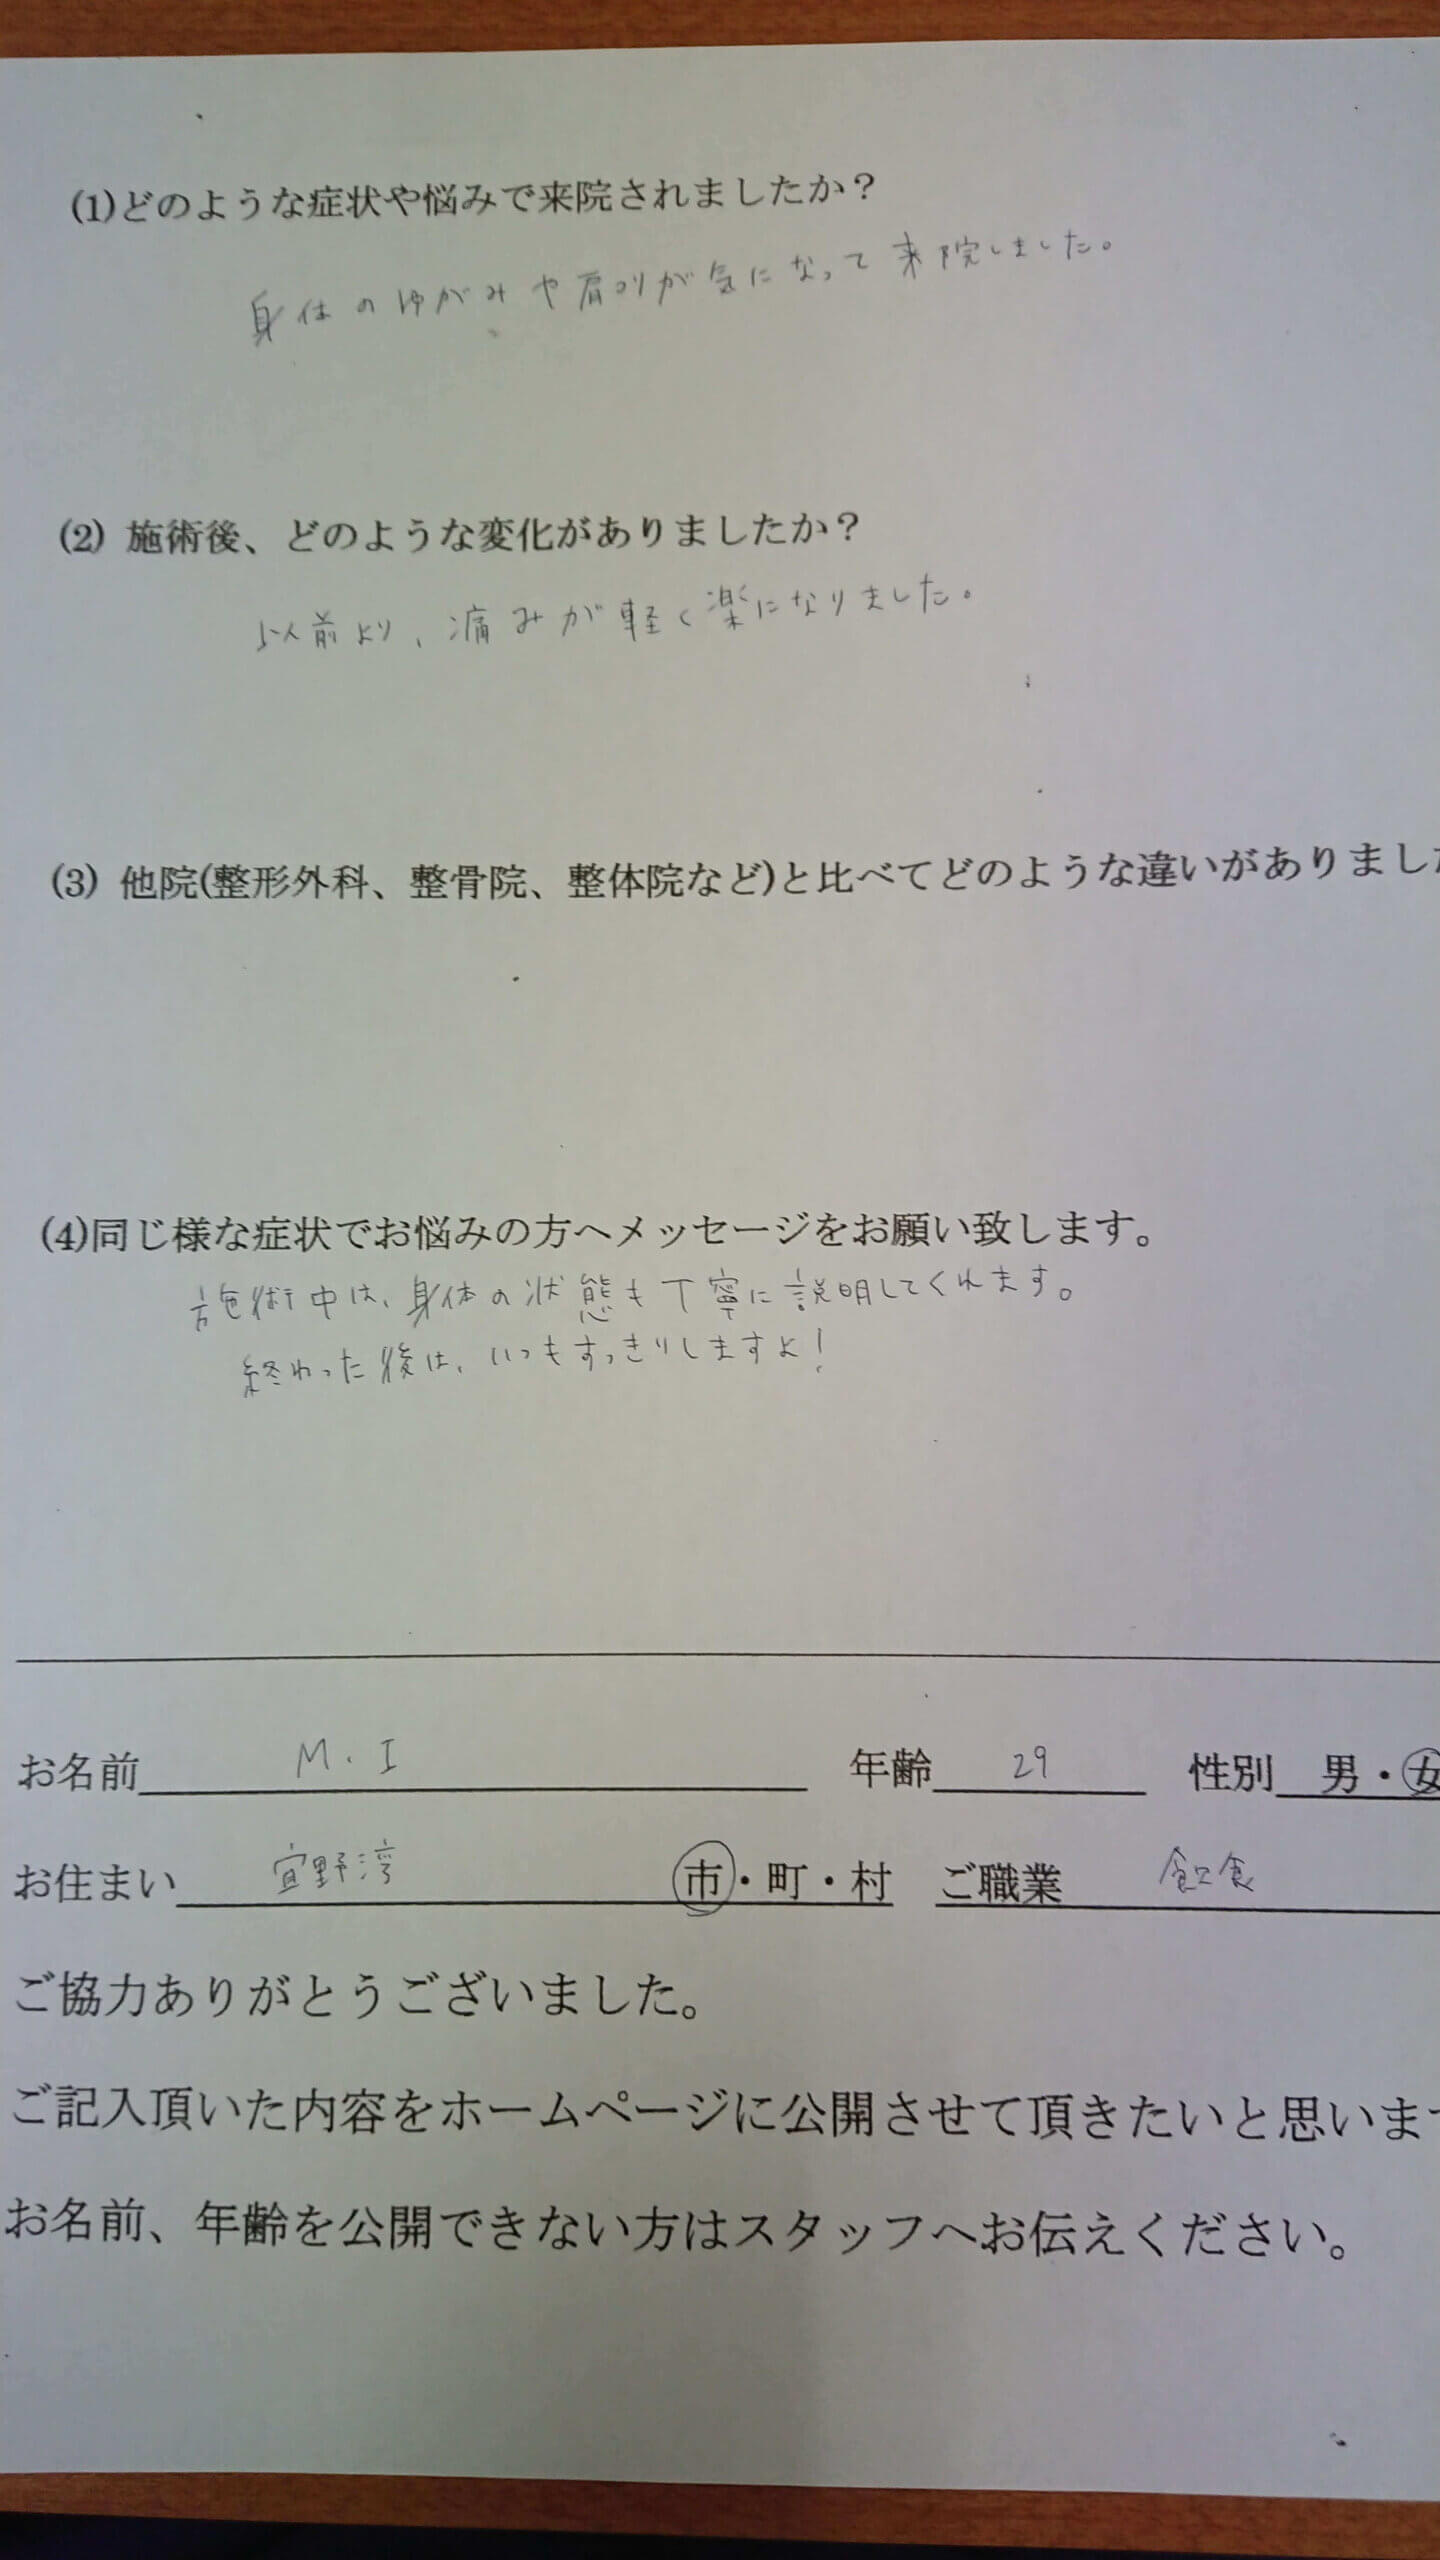 (1)どのような症状や悩みで来院されましたか？
身体のゆがみや肩コリが気になって来院しました。
(2) 施術後、どのような変化がありましたか？
以前より、痛みが軽く楽になりました。
(3) 他院(整形外科、整骨院、整体院など)と比べてどのような違いがありました
(4)同じ様な症状でお悩みの方へメッセージをお願い致します。
施術中は、身体の状態も丁寧に説明してくれます。
終わった後は、いつもすっきりしますよ！
お名前 M.I 年齢 29 性別 男・女
お住まい 宜野湾 市・町・村 ご職業 飲食
ご協力ありがとうございました。
ご記入頂いた内容をホームページに公開させて頂きたいと思いま
お名前、年齢を公開できない方はスタッフへお伝えください。